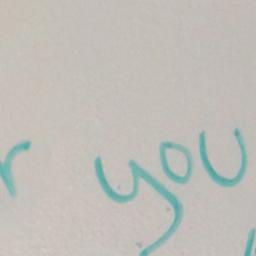 r you